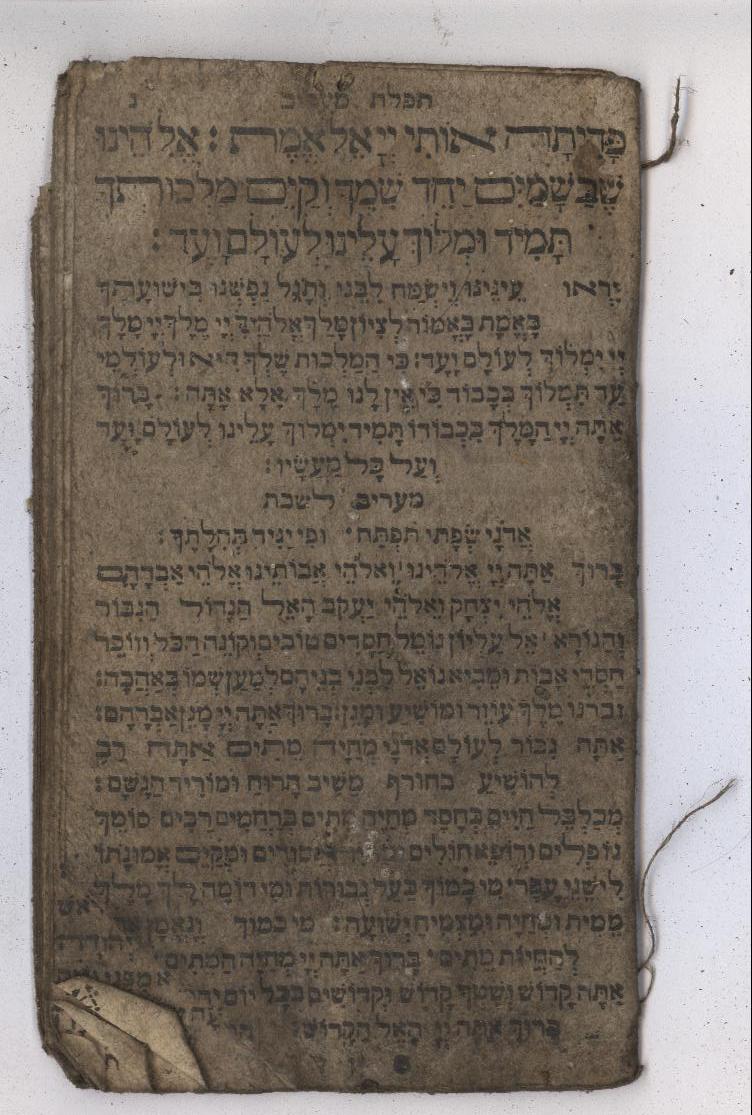 תפלת מעריב נ
פָּדִיתָה אוֹתִי יְיָ אֵל אֱמֶת : אֱלֹהֵינוּ
שֶׁבַּשָּׁמַיִם יַחֵד שִׁמְךָ וְקַיֵּם מַלְכוּתְךָ
תָּמִיד וּמְלוֹךְ עָלֵינוּ לְעוֹלָם וָעֶד :
יִרְאוּ עֵינֵינוּ וְיִשְׂמַח לִבֵּנוּ וְתָגֵל נַפְשֵׁנוּ בִּישׁוּעָתְךָ
בֶּאֱמֶת בֶּאֱמוֹר לְצִיּוֹן מָלַךְ אֱלֹהָיִךְ יְיָ מֶלֶךְ יְיָ מָלָךְ
יְיָ יִמְלוֹךְ לְעוֹלָם וָעֶד : כִּי הַמַּלְכוּת שֶׁלְּךָ הִיא וּלְעוֹלְמֵי
עַד תִּמְלוֹךְ בְּכָבוֹד כִּי אֵין לָנוּ מֶלֶךְ אֶלָּא אָתָּה : בָּרוּךְ
אַתָּה יְיָ הַמֶּלֶךְ בִּכְבוֹדוֹ תָּמִיד יִמְלוֹךְ עָלֵינוּ לְעוֹלָם וָעֶד
וְעַל כָּל מַעֲשָׂיו :
מעריב לשבת
אֲדֹנָי שְׂפָתַי תִּפְתָּח וּפִי יַגִּיד תְּהִלָּתֶךָ :
בָּרוּךְ אַתָּה יְיָ אֱלֹהֵינוּ וֵאלֹהֵי אֲבוֹתֵינוּ אֱלֹהֵי אַבְרָהָם
אֱלֹהֵי יִצְחָק וֵאלֹהֵי יַעֲקֹב הָאֵל הַגָּדוֹל הַגִּבּוֹר
וְהַנּוֹרָא אֵל עֶלְיוֹן גּוֹמֵל חֲסָדִים טוֹבִים וְקוֹנֵה הַכֹּל וְזוֹכֵר
חַסְדֵי אָבוֹת וּמֵבִיא גוֹאֵל לִבְנֵי בְנֵיהֶם לְמַעַן שְׁמוֹ בְּאַהֲבָה :
זכרנו מֶלֶךְ עוֹזֵר וּמוֹשִׁיעַ וּמָגֵן : בָּרוּךְ אַתָּה יְיָ מָגֵן אַבְרָהָם :
אַתָּה גִּבּוֹר לְעוֹלָם אֲדֹנָי מְחַיֵּה מֵתִים אַתָּה רַב
לְהוֹשִׁיעַ בחורף מַשִּׁיב הָרוּחַ וּמוֹרִיד הַגָּשֶׁם :
מְכַלְכֵּל חַיִּים בְּחֶסֶד מְחַיֵּה מֵתִים בְּרַחֲמִים רַבִּים סוֹמֵךְ
נוֹפְלִים וְרוֹפֵא חוֹלִים וּמַתִּיר אֲסוּרִים וּמְקַיֵּם אֱמוּנָתוֹ
לִישֵׁנֵי עָפָר מִי כָמוֹךָ בַּעַל גְּבוּרוֹת וּמִי דוֹמֶה לָּךְ מֶלֶךְ
מֵמִית וּמְחַיֶּה וּמַצְמִיחַ יְשׁוּעָה : מי כמוך וְנֶאֱמָן אַתָּה
לְהַחֲיוֹת מֵתִים בָּרוּךְ אַתָּה יְיָ מְחַיֵּה הַמֵּתִים
אַתָּה קָדוֹשׁ וְשִׁמְךָ קָדוֹשׁ וּקְדוֹשִׁים בְּכָל יוֹם
בָּרוּךְ אַתָּה יְיָ הָאֵל הַקָּדוֹשׁ :